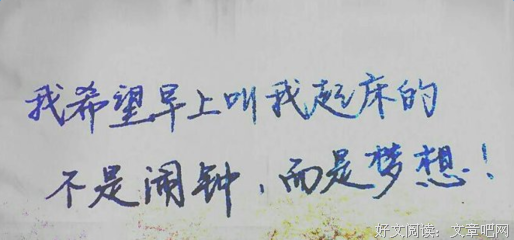 我希望早上叫我起床的
不是闹钟，而是梦想！
好文阅读：文章吧网